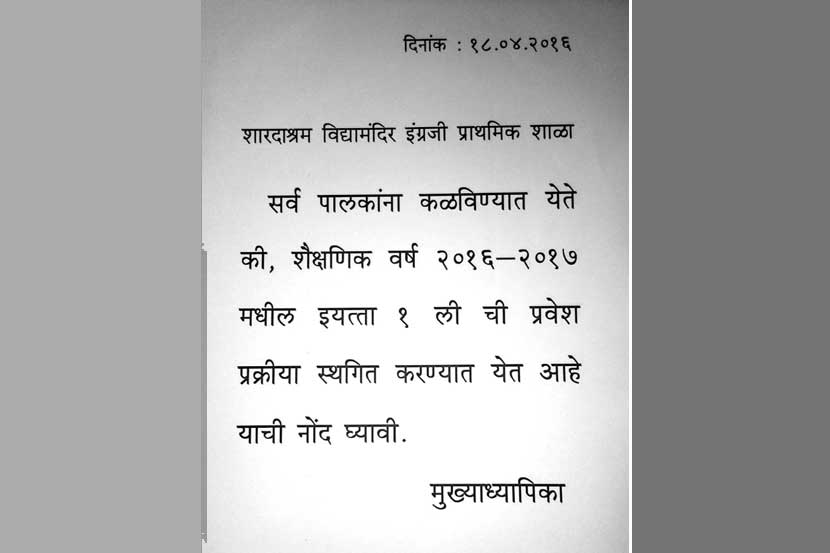 दिनांक : १८.०४.२०१६
शारदाश्रम विद्यामंदिर इंग्रजी प्राथमिक शाळा
सर्व पालकांना कळविण्यात येते
की, शैक्षणिक वर्ष २०१६–२०१७
मधील इयत्ता १ ली ची प्रवेश
प्रक्रीया स्थगित करण्यात येत आहे
याची नोंद घ्यावी.
मुख्याध्यापिका